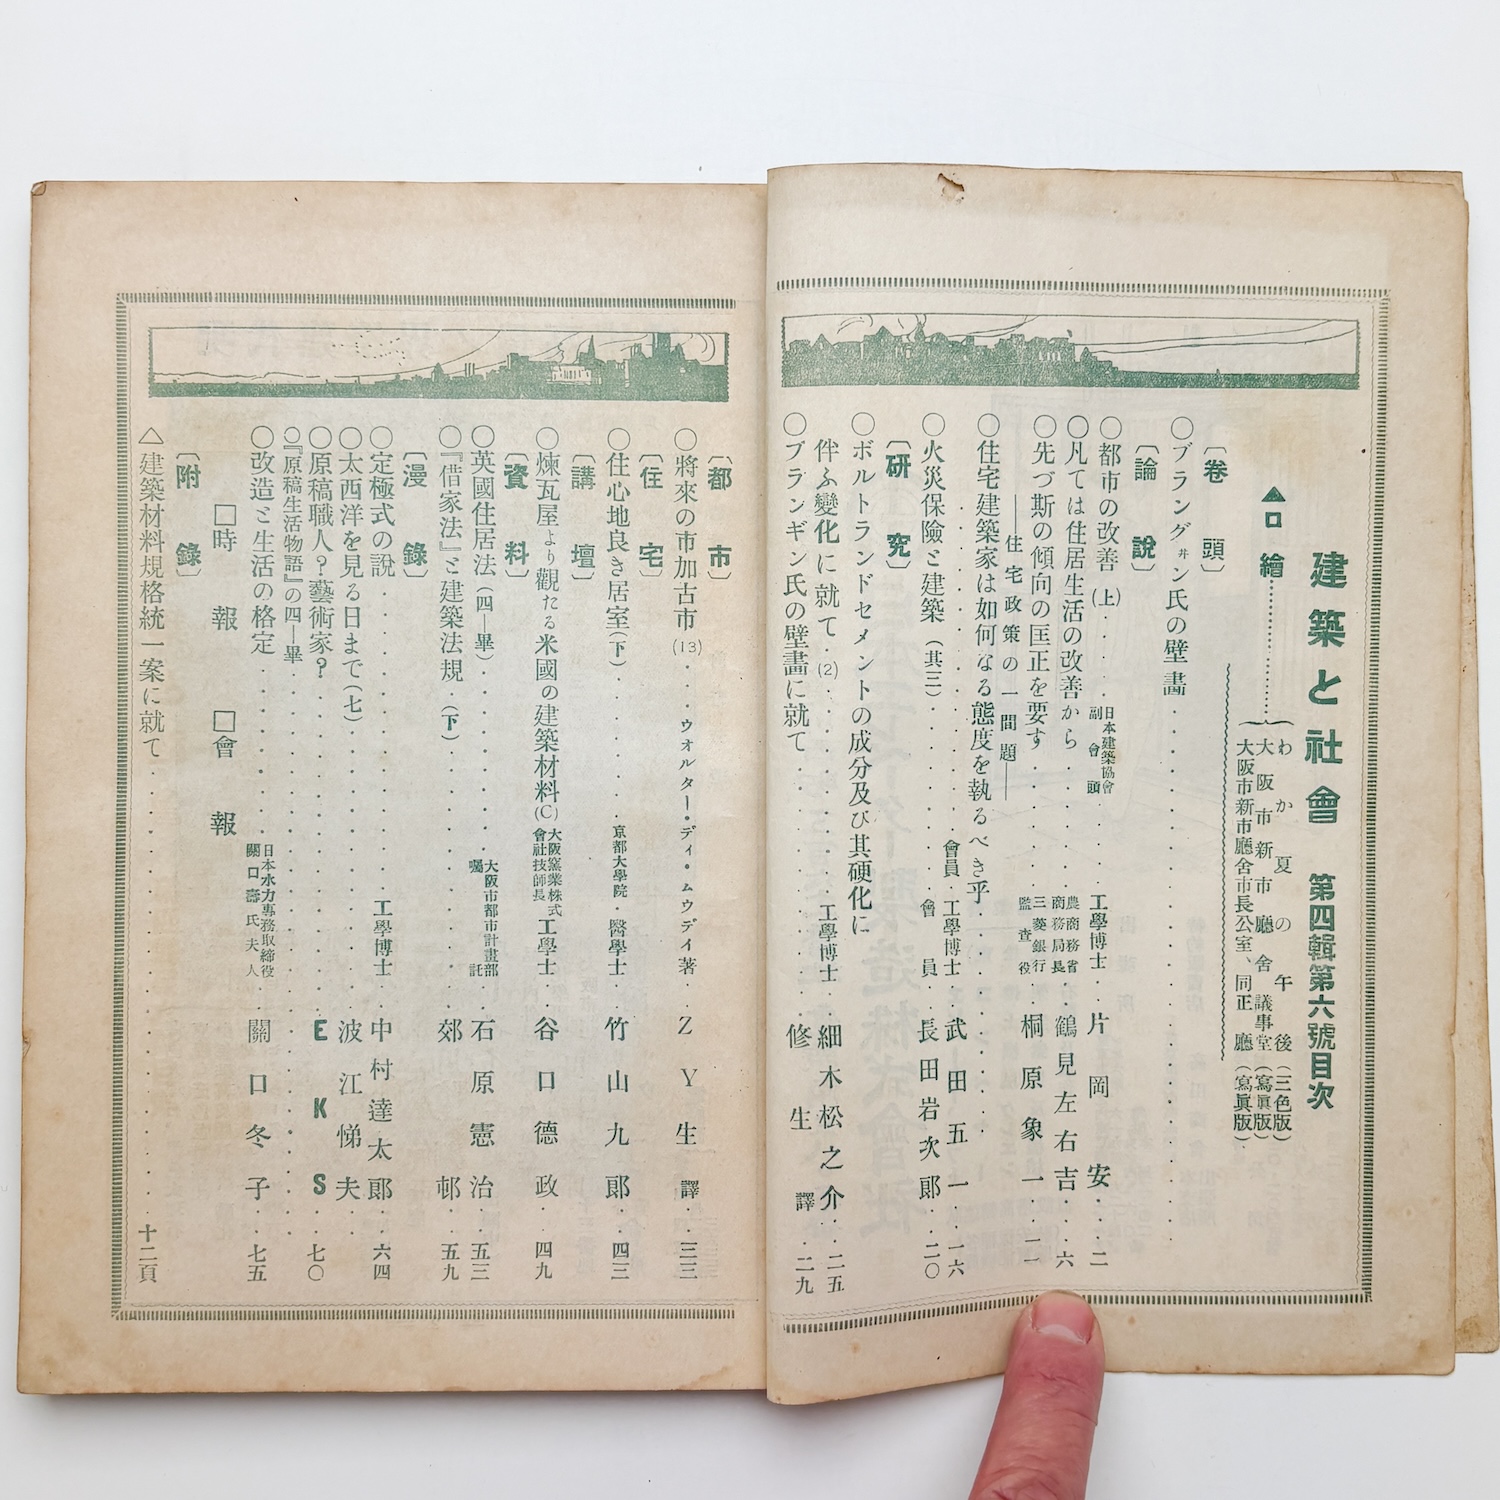 建築と社會　第四輯第六號目次
▲口繪
わか夏の午後（三色版）
大阪市新市廳舍議事堂（寫眞版）
大阪市新市廳舍市長公室、同正廳（寫眞版）
〔卷頭〕
○ブラングヰン氏の壁畫
〔論說〕
○都市の改善（上）　日本建築協會副會頭　工學博士　片岡安　二
○凡ては住居生活の改善から　農商務省商務局長　鶴見左右吉　六
○先づ斯の傾向の匡正を要す　三菱銀行監査役　桐原象一　一一
――住宅政策の一問題――
○住宅建築家は如何なる態度を執るべき乎
會員　工學博士　武田五一　一六
○火災保險と建築（其三）　會員　長田岩次郞　二〇
〔研究〕
○ポルトランドセメントの成分及び其硬化に
伴ふ變化に就て（2）　工學博士　細木松之介　二五
○ブランギン氏の壁畫に就て　修生譯　二九
〔都市〕
○將來の市加古市（13）　ウオルター・ディ・ムウディ著　ZY生譯　三三
〔住宅〕
○住心地良き居室（下）　京都大學院　醫學士　竹山九郞　四三
〔講壇〕
○煉瓦屋より觀たる米國の建築材料（C）　大阪窯業株式會社技師長　工學士　谷口德政　四九
〔資料〕
○英國住居法（四―畢）　大阪市都市計畫部囑託　石原憲治　五三
○『借家法』と建築法規（下）　郊邨　五九
〔漫錄〕
○定極式の說　工學博士　中村達太郞　六四
○太西洋を見る日まで（七）　波江悌夫
○原稿職人？藝術家？　EKS　七〇
○『原稿生活物語』の四―畢
○改造と生活の格定　日本水力專務取締役關口壽氏夫人　關口冬子　七五
□時報　□會報
〔附錄〕
△建築材料規格統一案に就て　十二頁